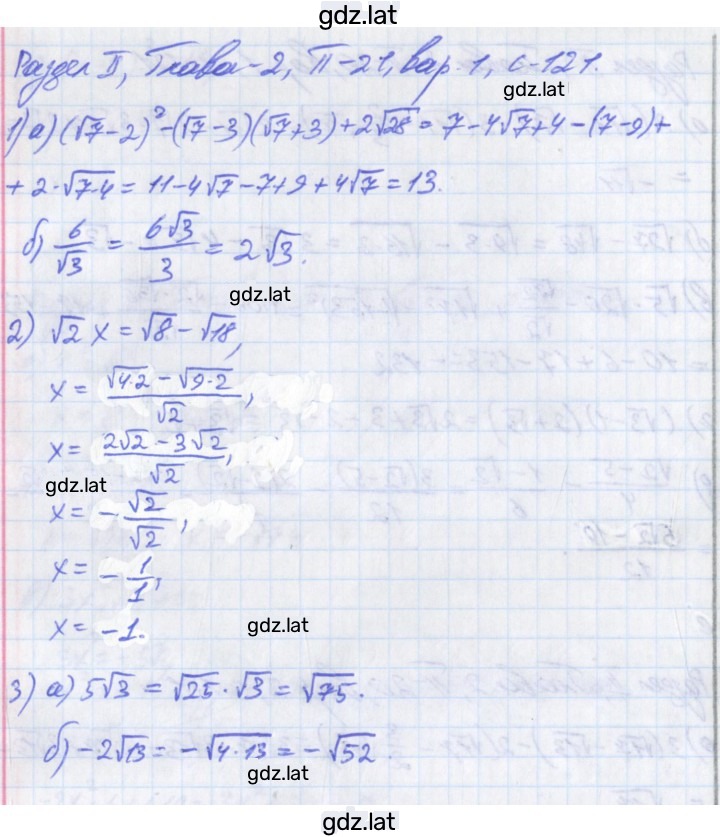 gdz.lat
Раздел II, Глава-2, П-21, вар. 1, С-121.
gdz.lat
1) а) (√7-2)² - (√7-3)(√7+3) + 2√28 = 7-4√7+4-(7-9)+
+ 2·√7·4 = 11-4√7-7+9+4√7 = 13.
б) 6/√3 = 6√3/3 = 2√3.
gdz.lat
2) √2 x = √8 - √18,
x = (√4·2 - √9·2)/√2,
x = (2√2 - 3√2)/√2,
gdz.lat
x = - √2/√2,
x = - 1/1,
x = -1.
gdz.lat
3) а) 5√3 = √25·√3 = √75.
б) -2√13 = -√4·13 = -√52.
gdz.lat
gdz.lat